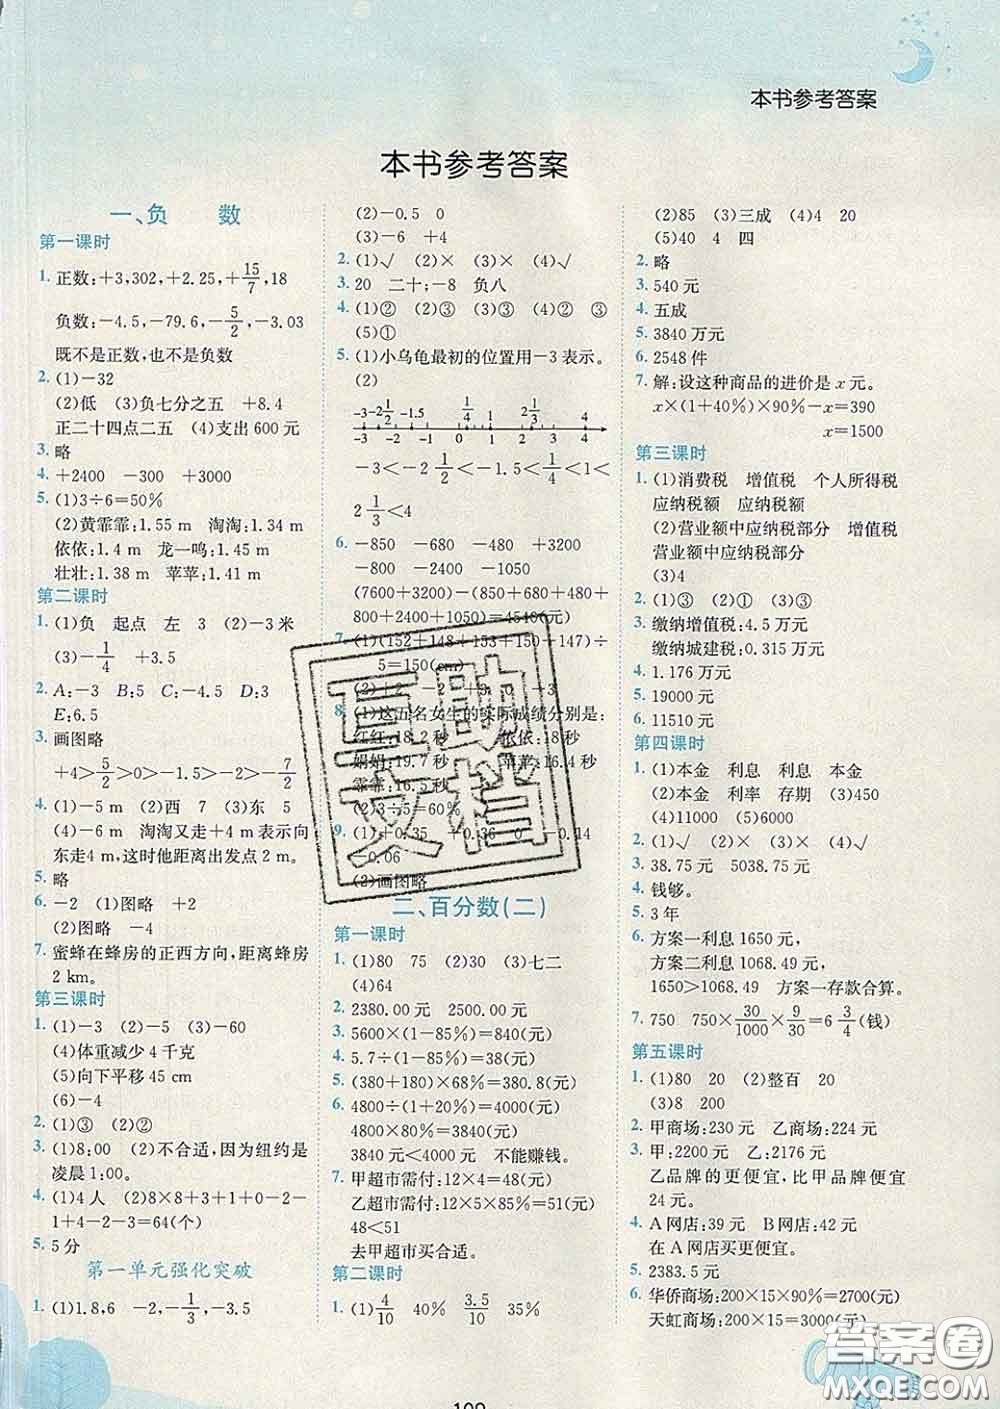 本书参考答案
本书参考答案
一、负 数
第一课时
1. 正数:+3,302,+2.25,+15/7,18
负数:-4.5,-79.6,-5/2,-3.03
既不是正数,也不是负数
2. (1)-32
(2)低 (3)负七分之五 +8.4
正二十四点二五 (4)支出 600 元
3. 略
4. +2400 -300 +3000
5. (1)3÷6=50%
(2)黄霏霏:1.55 m 淘淘:1.34 m
依依:1.4 m 龙一鸣:1.45 m
壮壮:1.38 m 苹苹:1.41 m
第二课时
1. (1)负 起点 左 3 (2)-3 米
(3)-1/4 +3.5
2. A:-3 B:5 C:-4.5 D:3
E:6.5
3. 画图略
+4>5/2>0>-1.5>-2>-7/2
4. (1)-5 m (2)西 7 (3)东 5
(4)-6 m 淘淘又走+4 m 表示向
东走4 m,这时他距离出发点 2 m。
5. 略
6. -2 (1)图略 +2
(2)图略 -4
7. 蜜蜂在蜂房的正西方向,距离蜂房
2 km。
第三课时
1. (1)-3 (2)-5 (3)-60
(4)体重减少 4 千克
(5)向下平移 45 cm
(6)-4
2. (1)③ (2)②
3. (1)8:00 (2)不合适,因为纽约是
凌晨 1:00。
4. (1)4 人 (2)8×8+3+1+0-2-
1+4-2-1-3=64(个)
5. 5 分
第一单元强化突破
1. (1)1.8,6 -2,-1/3,-3.5
(2)-0.5 0
(3)-6 +4
2. (1)√ (2)× (3)× (4)√
3. 20 二十;-8 负八
4. (1)② (2)③ (3)③ (4)② ③
(5)①
5. (1)小乌龟最初的位置用-3 表示。
(2)
-3 -2 1/2 -1.5 1/4 1 2 1/3 4
-3 -2 -1 0 1 2 3 4
-3<-2 1/2<-1.5<1/4<1<
2 1/3<4
6. -850 -680 -480 +3200
-800 -2400 -1050
(7600+3200)-(850+680+480+
800+2400+1050)=4540(元)
7. (1)(152+148+153+150+147)÷
5=150(cm)
(2)+2 -2 +3 0 -3
8. (1)这五名女生的实际成绩分别是:
红红:18.2 秒 依依:18 秒
娟娟:19.7 秒 苹苹:16.4 秒
霏霏:16.5 秒
(2)3÷5=60%
9. (1)+0.35 +0.36 0 -0.14
-0.06
(2)画图略
二、百分数(二)
第一课时
1. (1)80 75 (2)30 (3)七二
(4)64
2. 2380.00 元 2500.00 元
3. 5600×(1-85%)=840(元)
4. 5.7÷(1-85%)=38(元)
5. (380+180)×68%=380.8(元)
6. 4800÷(1+20%)=4000(元)
4800×80%=3840(元)
3840 元<4000 元 不能赚钱。
7. 甲超市需付:12×4=48(元)
乙超市需付:12×5×85%=51(元)
48<51
去甲超市买合适。
第二课时
1. (1)4/10 40% 3.5/10 35%
(2)85 (3)三成 (4)4 20
(5)40 4 四
2. 略
3. 540 元
4. 五成
5. 3840 万元
6. 2548 件
7. 解:设这种商品的进价是 x 元。
x×(1+40%)×90%-x=390
x=1500
第三课时
1. (1)消费税 增值税 个人所得税
应纳税额 应纳税额
(2)营业额中应纳税部分 增值税
营业额中应纳税部分
(3)4
2. (1)③ (2)① (3)③
3. 缴纳增值税:4.5 万元
缴纳城建税:0.315 万元
4. 1.176 万元
5. 19000 元
6. 11510 元
第四课时
1. (1)本金 利息 利息 本金
(2)本金 利率 存期 (3)450
(4)11000 (5)6000
2. (1)√ (2)× (3)× (4)√
3. 38.75 元 5038.75 元
4. 钱够。
5. 3 年
6. 方案一利息 1650 元,
方案二利息 1068.49 元,
1650>1068.49 方案一存款合算。
7. 750 750×30/1000×9/30=6 3/4(钱)
第五课时
1. (1)80 20 (2)整百 20
(3)8 200
2. 甲商场:230 元 乙商场:224 元
3. 甲:2200 元 乙:2176 元
乙品牌的更便宜,比甲品牌便宜
24 元。
4. A 网店:39 元 B 网店:42 元
在 A 网店买更便宜。
5. 2383.5 元
6. 华侨商场:200×15×90%=2700(元)
天虹商场:200×15=3000(元)
109
互助
文档
答案圈
MXQE.COM